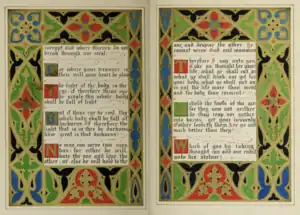 corrupt and where thieves do not
break through nor steal
For where your treasure is
there will your heart be also
The light of the body is the
eye if therefore thine eye
be single thy whole body
shall be full of light
But if thine eye be evil thy
whole body shall be full of
darkness If therefore the
light that is in thee be darkness
how great is that darkness
No man can serve two mas
ters for either he will
hate the one and love the
other or else he will hold to the
one, and despise the other Ye
cannot serve God and mammon
Therefore I say unto you
Take no thought for your
life, what ye shall eat or
what ye shall drink nor yet for
your body, what ye shall put on
Is not the life more than meat
and the body than raiment?
Behold the fowls of the air
for they sow not neither
do they reap nor gather
into barns; yet your heavenly
father feedeth them Are ye not
much better than they?
Which of you by taking
thought can add one cubit
unto his stature?